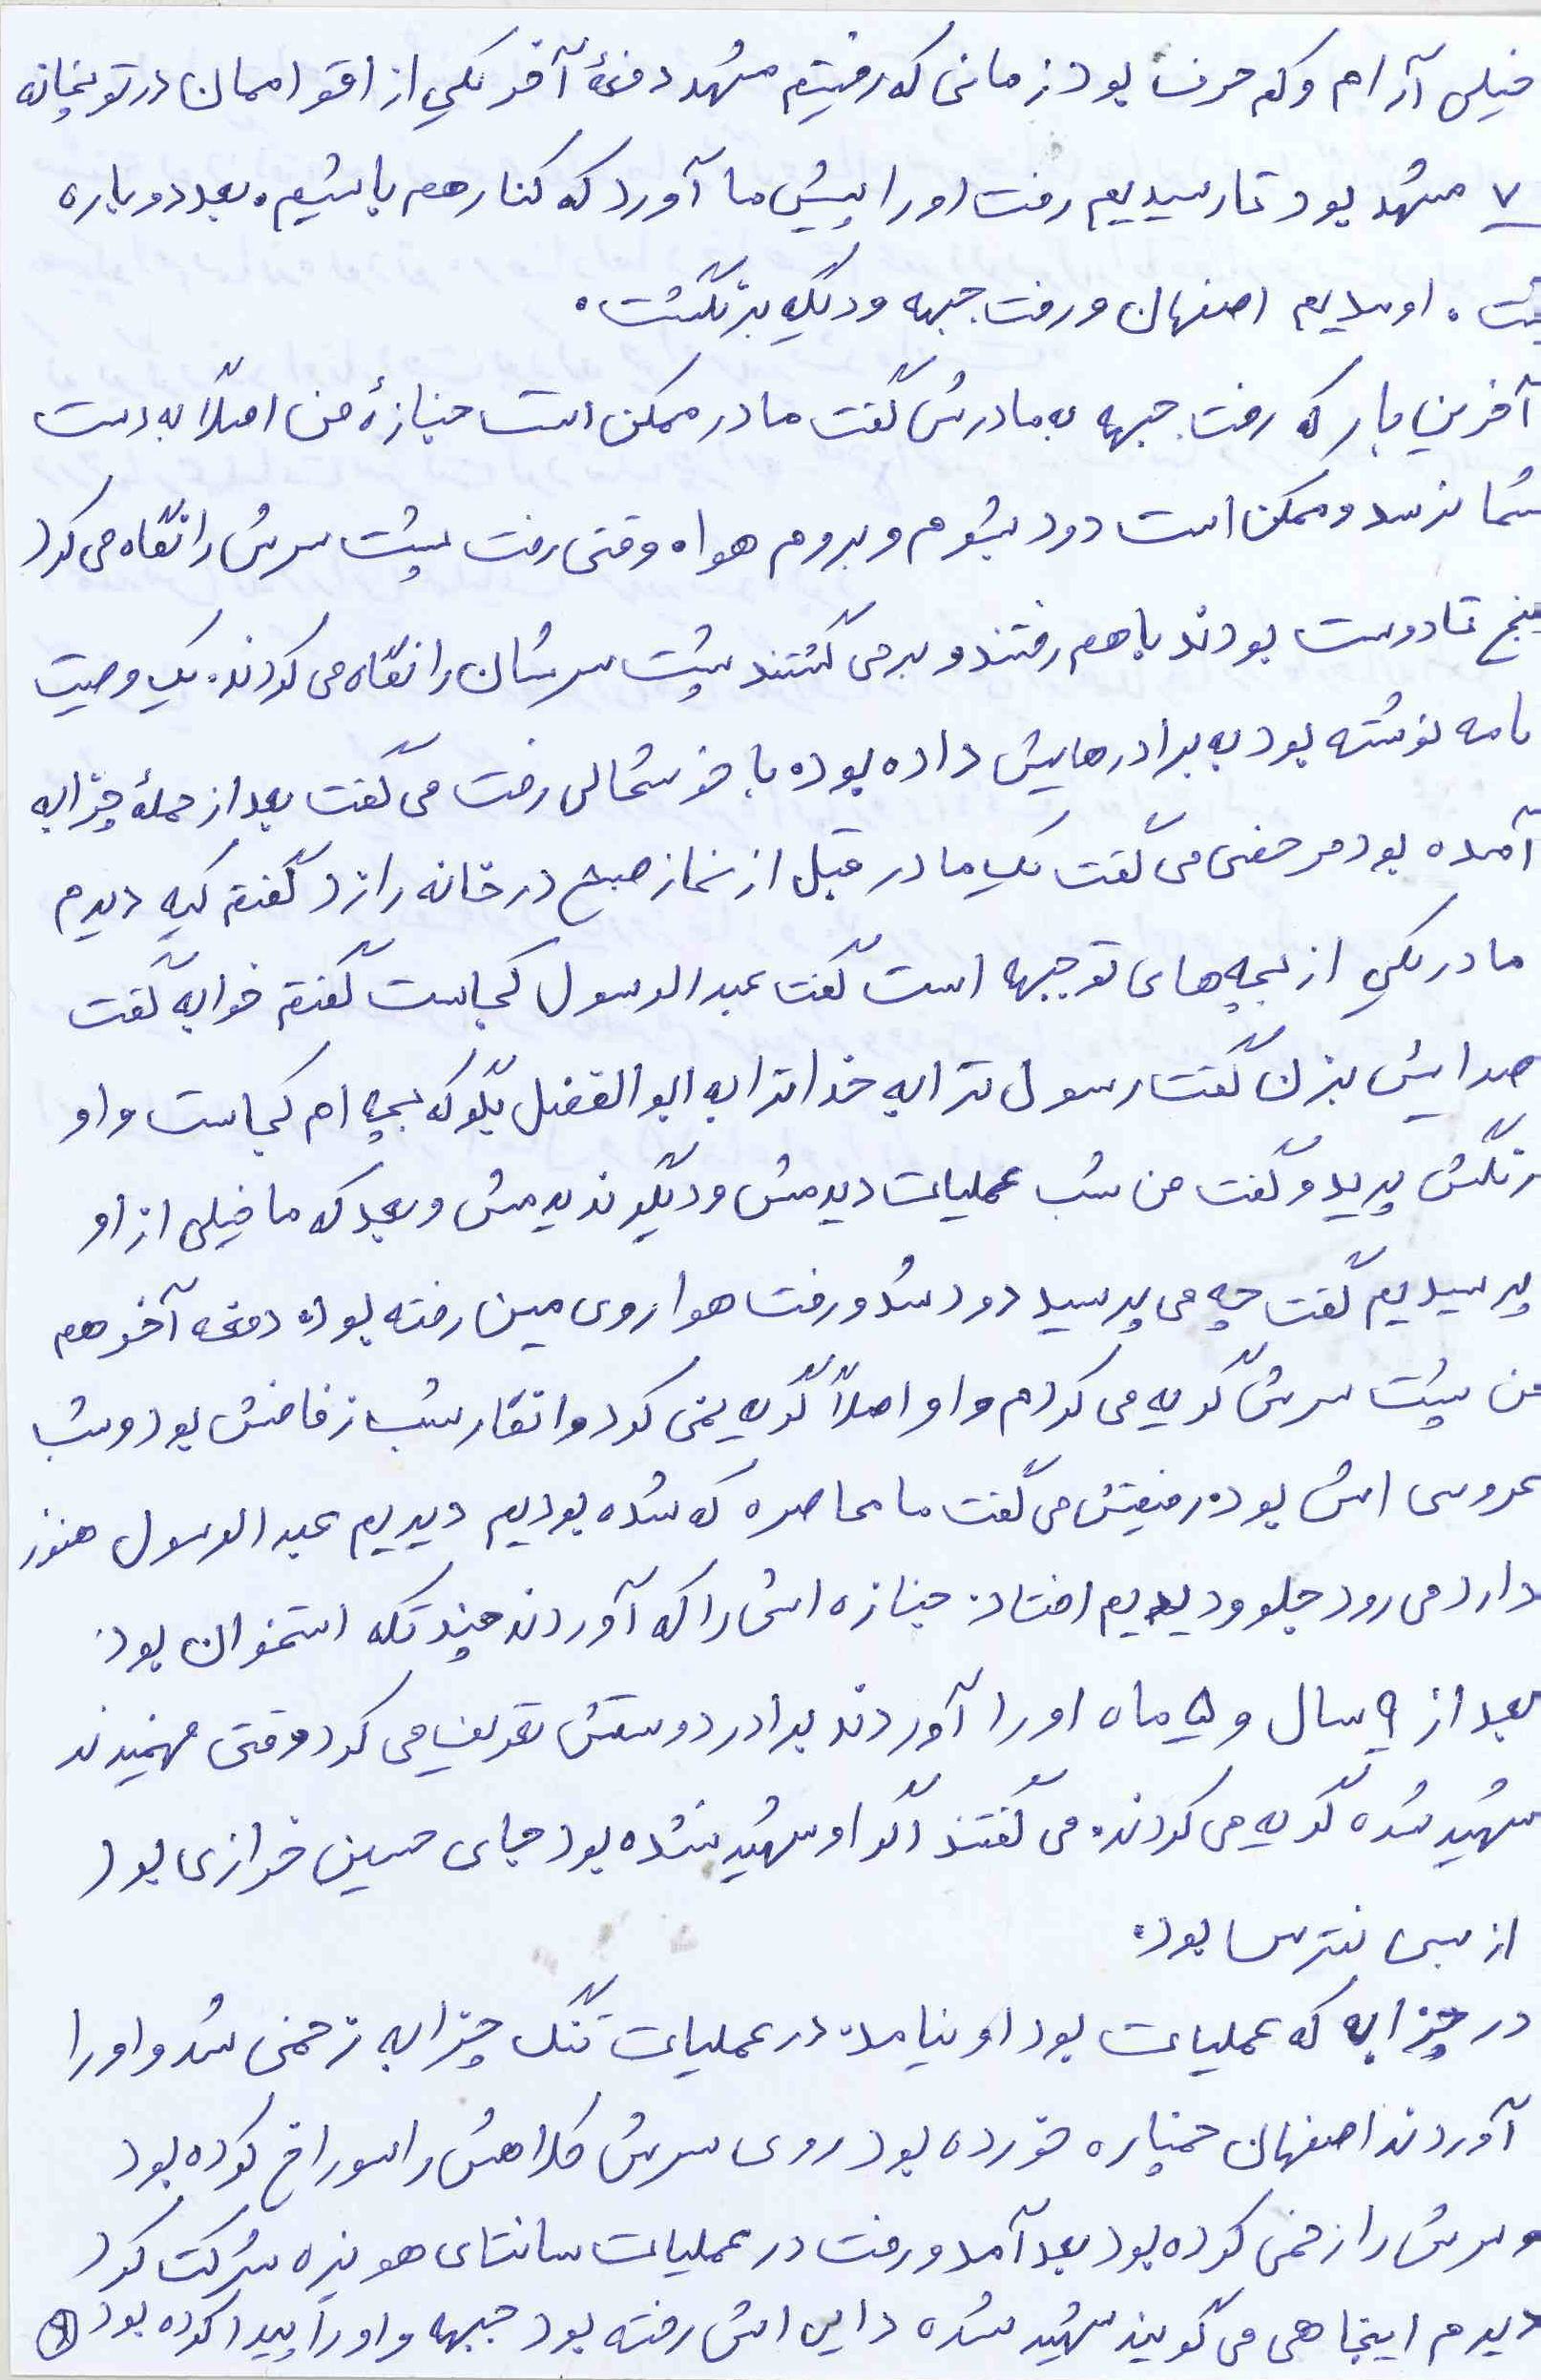 خیلی آرام و کم حرف بود زمانی که رفتیم مشهد دفعهٔ آخر یکی از اقواممان در توپخانه
۷ مشهد بود تا رسیدیم رفت او را پیش ما آورد که کنار هم باشیم. بعد دوباره
اومدیم اصفهان و رفت جبهه و دیگه برنگشت.
آخرین بار که رفت جبهه به مادرش گفت مادر ممکن است جنازهٔ من اصلاً به دست
شما نرسد و ممکن است دود بشوم و بروم هوا. وقتی رفت پشت سرش را نگاه می کرد
پنج تا دوست بودند باهم رفتند و برمی گشتند پشت سرشان را نگاه می کردند. یک وصیت
نامه نوشته بود به برادرهایش داده بود. با خوشحالی رفت می گفت بعد از حملهٔ چزابه
آمده بود مرخصی می گفت یک مادر قبل از نماز صبح در خانه را زد گفتم کیه دیدم
مادر یکی از بچه های تو جبهه است گفت عبدالرسول کجاست گفتم خوابه گفت
صدایش بزن گفت رسول ترا به خدا ترا به ابوالفضل بگو که بچه ام کجاست و او
رنگش پرید و گفت من شب عملیات دیدمش و دیگر ندیدمش و بعد که ما خیلی از او
پرسیدیم گفت چه می پرسید دود شد و رفت هوا روی مین رفته بود. دفعه آخر هم
من پشت سرش گریه می کردم و او اصلاً گریه نمی کرد و انگار شب زفافش بود و شب
عروسی اش بود. رفیقش می گفت ما محاصره که شده بودیم دیدیم عبدالرسول هنوز
دارد می رود جلو و دیدیم افتاد. جنازه اش را که آوردند چند تکه استخوان بود.
بعد از ۹ سال و ۵ ماه او را آوردند برادر دوستش تعریف می کرد وقتی فهمیدند
شهید شده گریه می کردند. می گفتند اگر او شهید نشده بود جای حسین خرازی بود
از بس نترس بود.
در چزابه که عملیات بود او نیامد. در عملیات تنگ چزابه زخمی شد و او را
آوردند اصفهان خمپاره خورده بود روی سرش کلاهش را سوراخ کرده بود
و سرش را زخمی کرده بود بعد آمد و رفت در عملیات سانتای هویزه شرکت کرد
دیدم اینجا هی می گویند شهید شده دایی اش رفته بود جبهه و او را پیدا کرده بود